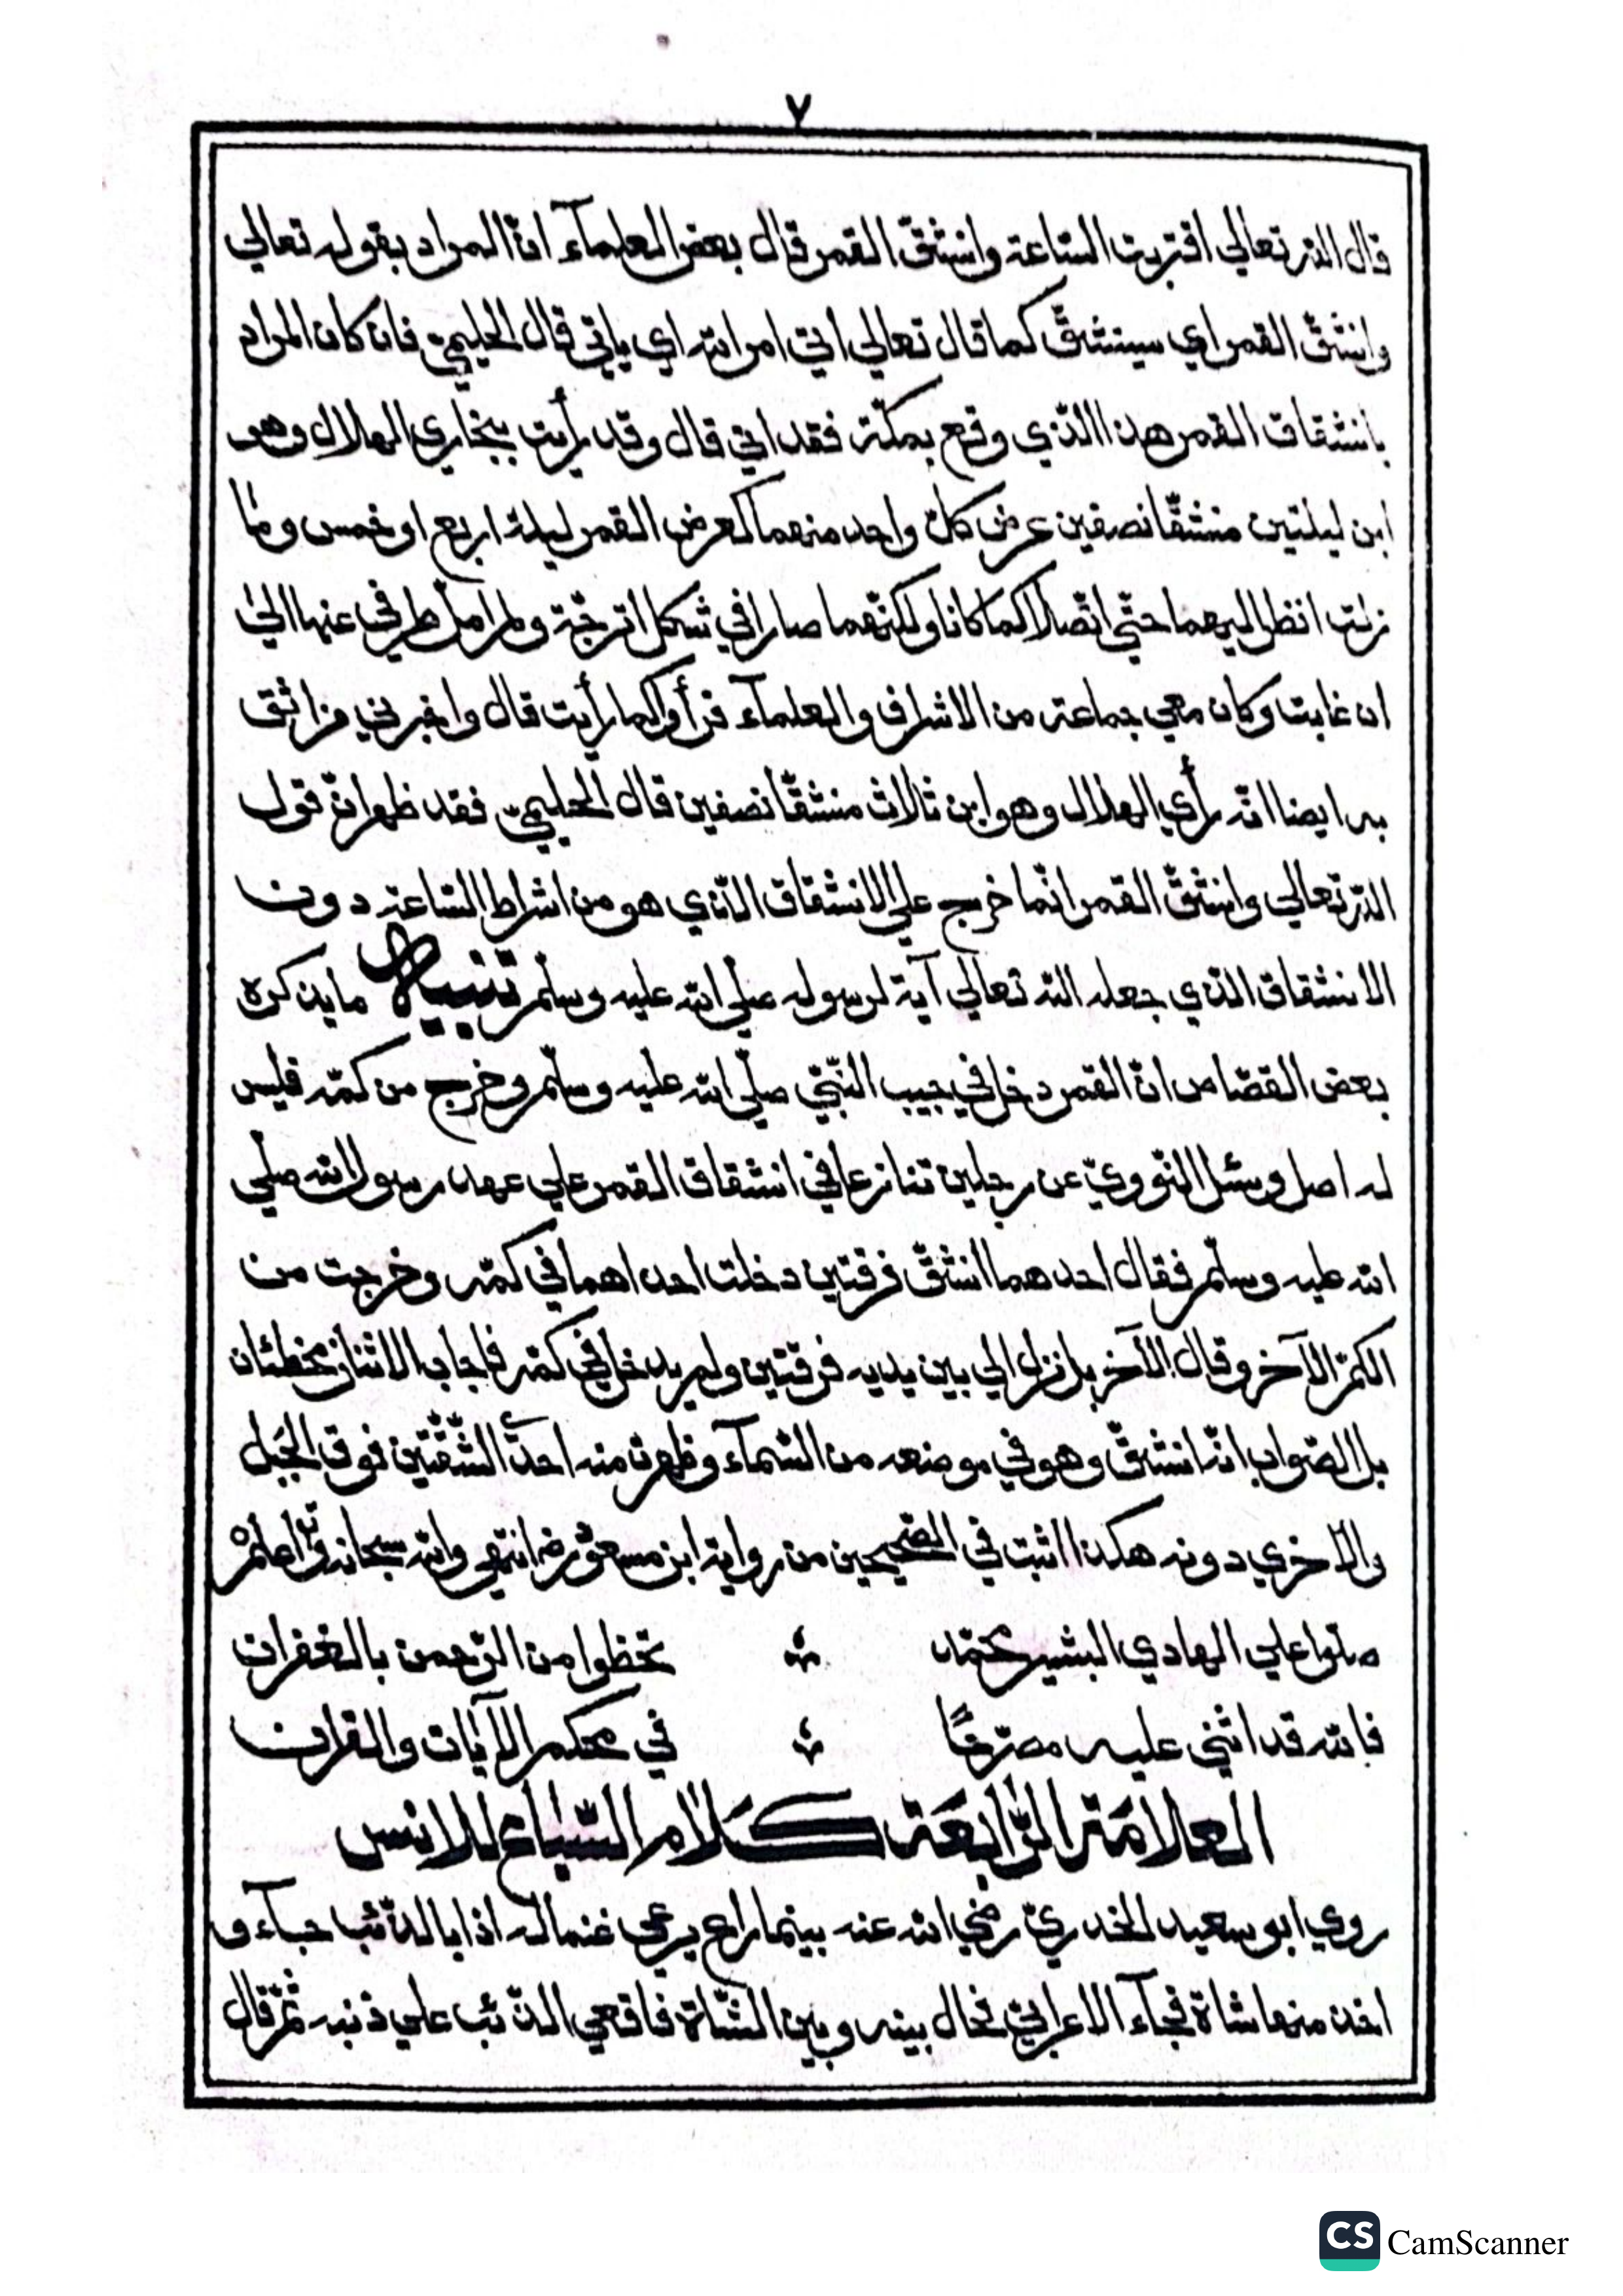 ٧
قال الله تعالي اقتربت السّاعة وانشقّ القمر قال بعض العلمآء انّ المراد بقوله تعالي
وانشقّ القمر اي سينشقّ كما قال تعالي اتي امر الله اي ياتي قال الحليميّ فان كان المراد
بانشقاق القمر هذا الّذي وقع بمكّة فقد اتي قال وقد رأيت ببخاري الهلال وهو
ابن ليلتين منشقّا نصفين عرض كلّ واحد منهما كعرض القمر ليلة اربع او خمس وما
زلت انظر اليهما حتّي اتّصلا كما كانا ولكنّهما صارا في شكل اترجّة ولم امل طرفي عنها الي
ان غابت وكان معي جماعة من الاشراف والعلمآء فرأوا كما رأيت قال واخبرني من اثق
به ايضا انّه رأي الهلال وهو ابن ثلاث منشقّا نصفين قال الحليميّ فقد ظهر انّ قول
الله تعالي وانشقّ القمر انّما خرج علي الانشقاق الّذي هو من اشراط السّاعة دون
الانشقاق الّذي جعله الله تعالي آية لرسوله صلّي الله عليه وسلّم تنبيه ما يذكره
بعض القصّاص انّ القمر دخل في جيب النّبيّ صلّي الله عليه وسلّم وخرج من كمّه فليس
له اصل وسئل النّوويّ عن رجلين تنازعا في انشقاق القمر علي عهد رسول الله صلّي
الله عليه وسلّم فقال احدهما انشقّ فرقتين دخلت احداهما في كمّه وخرجت من
الكمّ الآخر وقال الآخر بل نزل الي بين يديه فرقتين ولم يدخل في كمّه فاجاب الاثنان مخطئان
بل الصّواب انّه انشقّ وهو في موضعه من السّمآء وظهرت منه احدي الشّقّتين فوق الجبل
والاخري دونه هكذا اثبت في الصّحيحين من رواية ابن مسعود رض انتهي والله سبحانه وتع اعلم
صلّوا علي الهادي البشير محمّد تحظوا من الرّحمن بالغفران
فالله قد اثني عليه مصرّحًا في محكم الآيات والقران
العلامة الرّابعة كلام السّباع للانس
روي ابو سعيد الخدريّ رضي الله عنه بينما راع يرعي غنما له اذا بالذّئب جآء و
اخذ منها شاة فجآء الاعرابيّ فحال بينه وبين الشّاة فاقعي الذّئب علي ذنبه ثمّ قال
CS CamScanner